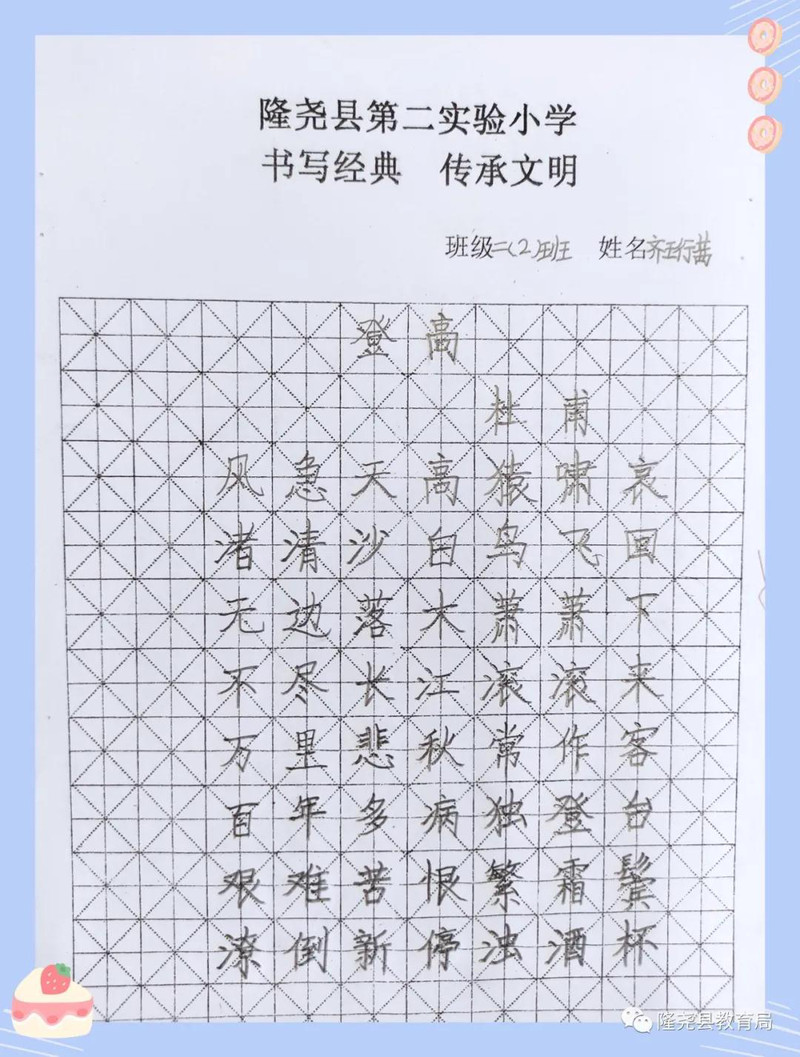 隆尧县第二实验小学
书写经典 传承文明
班级二(2)班 姓名
登高
杜甫
风急天高猿啸哀
渚清沙白鸟飞回
无边落木萧萧下
不尽长江滚滚来
万里悲秋常作客
百年多病独登台
艰难苦恨繁霜鬓
潦倒新停浊酒杯
隆尧县教育局